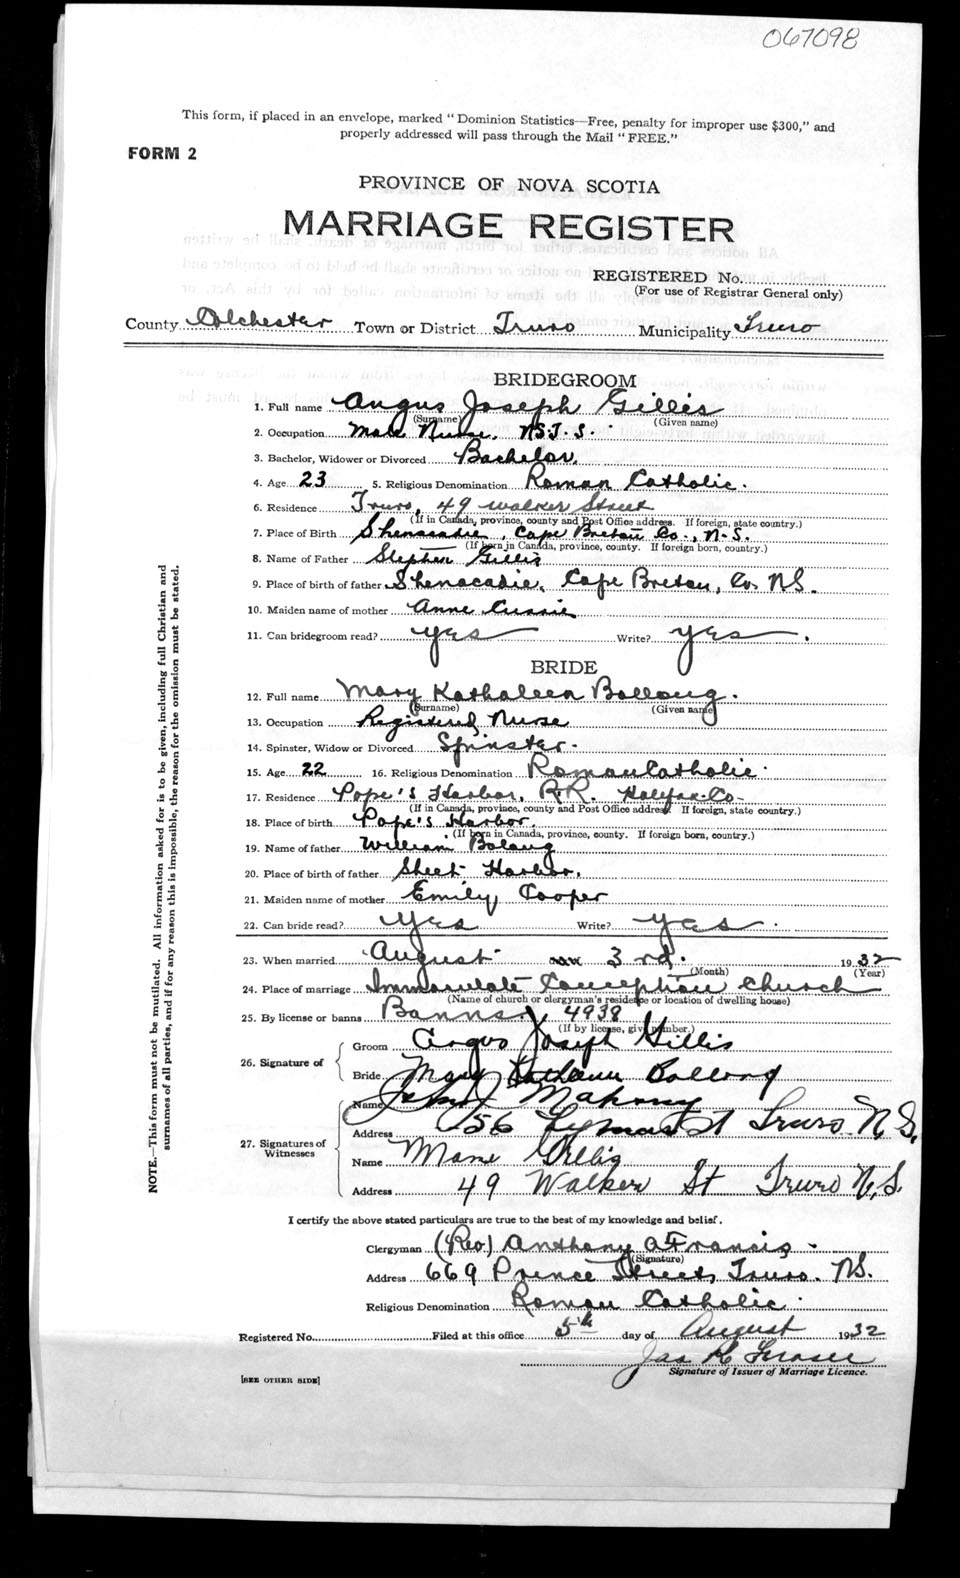 067098
This form, if placed in an envelope, marked "Dominion Statistics—Free, penalty for improper use $300," and
properly addressed will pass through the Mail "FREE."
FORM 2
PROVINCE OF NOVA SCOTIA
MARRIAGE REGISTER
REGISTERED No.
(For use of Registrar General only)
County Colchester Town or District Truro Municipality Truro
BRIDEGROOM
1. Full name Angus Joseph Gillis
(Surname) (Given name)
2. Occupation Male Nurse. N.S.T.S.
3. Bachelor, Widower or Divorced Bachelor.
4. Age 23 5. Religious Denomination Roman Catholic.
6. Residence Truro, 49 Walker Street
(If in Canada, province, county and Post Office address. If foreign, state country.)
7. Place of Birth Shenacadie, Cape Breton Co., N.S.
(If born in Canada, province, county. If foreign born, country.)
8. Name of Father Stephen Gillis
9. Place of birth of father Shenacadie, Cape Breton, Co. N.S.
10. Maiden name of mother Anne Currie
11. Can bridegroom read? yes Write? yes.
BRIDE
12. Full name Mary Kathaleen Bollong.
(Surname) (Given name)
13. Occupation Registered Nurse
14. Spinster, Widow or Divorced Spinster.
15. Age 22 16. Religious Denomination Roman Catholic.
17. Residence Pope's Harbor, R.R. Halifax Co.
(If in Canada, province, county and Post Office address. If foreign, state country.)
18. Place of birth Pope's Harbor.
(If born in Canada, province, county. If foreign born, country.)
19. Name of father William Bolong
20. Place of birth of father Sheet Harbor.
21. Maiden name of mother Emily Cooper
22. Can bride read? Yes Write? yes.
23. When married August 3rd. 1932
(Month) (Year)
24. Place of marriage Immaculate Conception Church
(Name of church or clergyman's residence or location of dwelling house)
25. By license or banns Banns. 4938
(If by license, give number.)
26. Signature of
Groom Angus Joseph Gillis
Bride Mary Kathleen Bollong
27. Signatures of
Witnesses
Name Mahony
Address 156 Lyman St Truro N.S.
Name Gillis
Address 49 Walker St Truro N.S.
I certify the above stated particulars are true to the best of my knowledge and belief.
Clergyman (Rev.) Anthony Francis
(Signature)
Address 669 Prince Street, Truro. N.S.
Religious Denomination Roman Catholic.
Registered No. Filed at this office 5th day of August 1932
Jas K Fraser
Signature of Issuer of Marriage Licence.
[SEE OTHER SIDE]
NOTE.—This form must not be mutilated. All information asked for is to be given, including full Christian and
surnames of all parties, and if for any reason this is impossible, the reason for the omission must be stated.